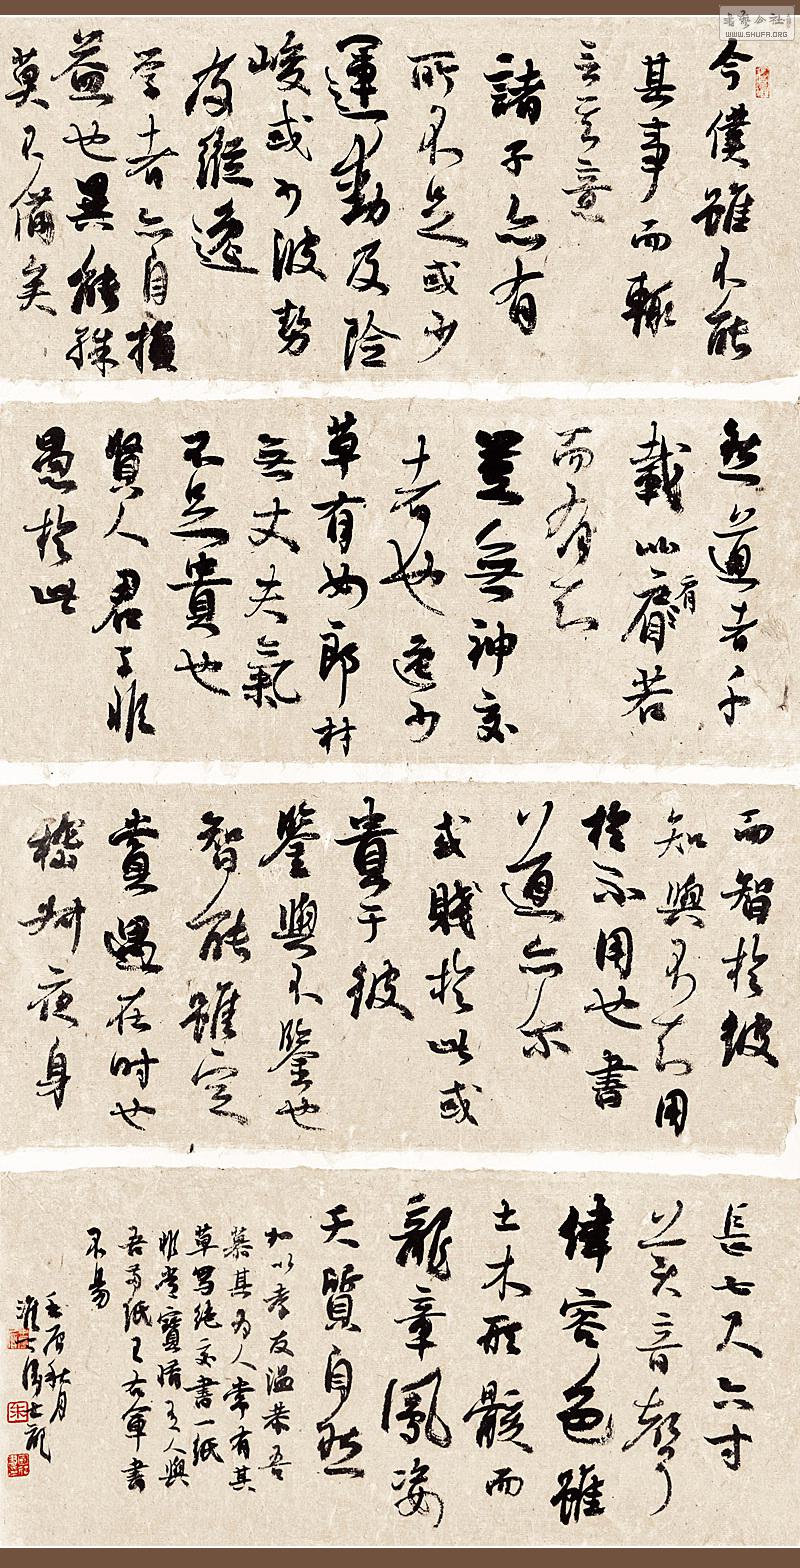 今僕雖不能
其事而輒
言其意
諸子亦有
所不足或少
運動及险
峻或少波勢
及縱逸
学者亦自損
益也異能殊
莫不備矣
然道者千
載比肩若
而有知
豈無神交
者也逸少
草有女郎材
無丈夫氣
不足貴也
賢人君子非
愚於此
而智於彼
知與不知用
於不用也書
道亦尔
或賤於此或
貴于彼
鑒與不鑒也
智能雖定
貴遇在时也
嵇叔夜身
長七尺六寸
美音聲
偉容色雖
土木形骸而
龍章鳳姿
天質自然
加以孝友温恭吾
慕其为人嘗有其
草写絶交書一紙
非常寶惜有人與
吾兩紙王右軍書
不易
壬辰秋月
书艺公社
WWW.SHUFA.ORG